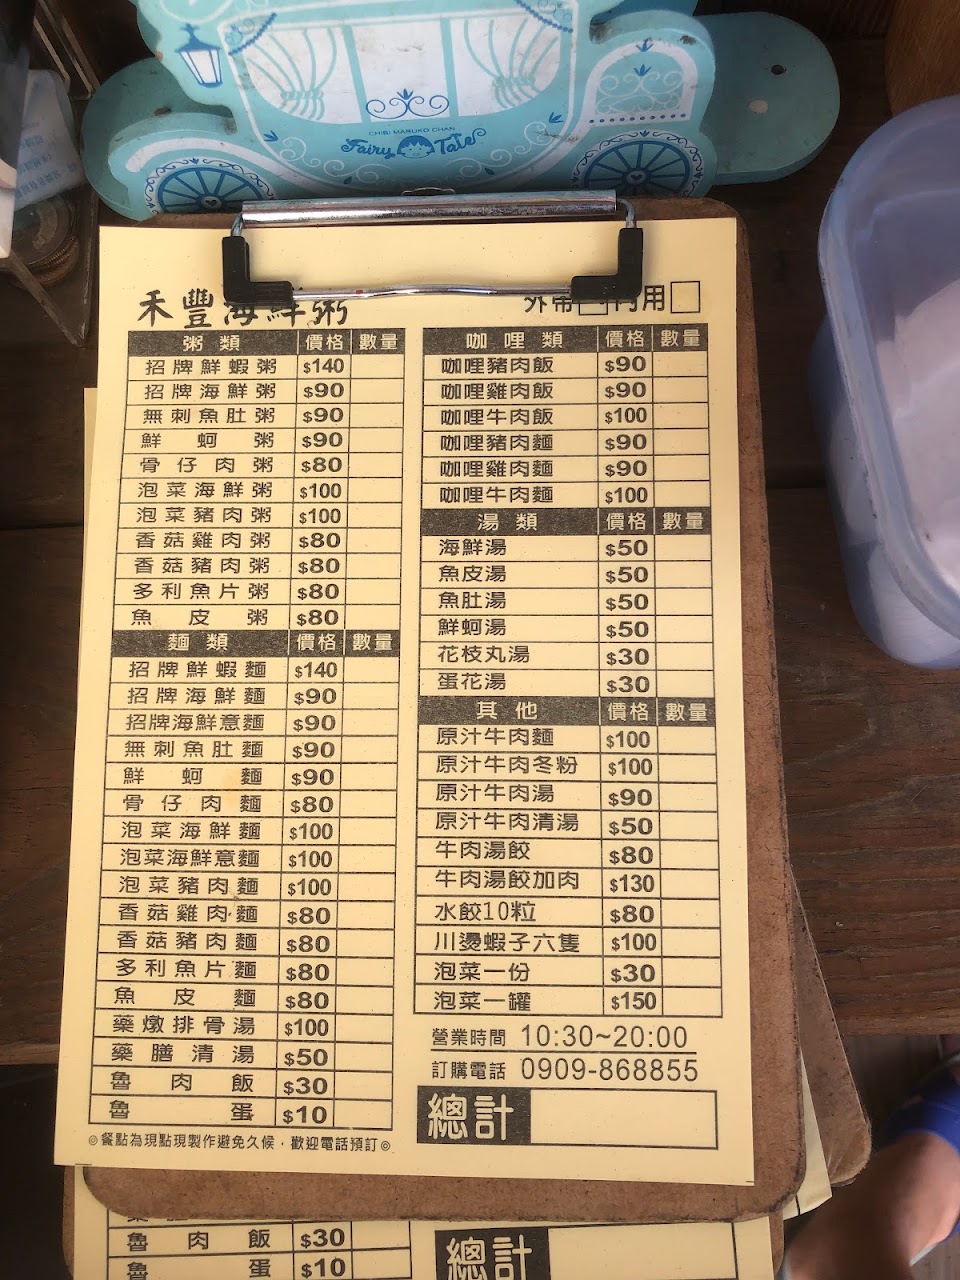 CHIBI MARUKO CHAN
Fairy Tale
禾豐海鮮粥
外帶 內用
粥類 價格 數量
招牌鮮蝦粥 $140
招牌海鮮粥 $90
無刺魚肚粥 $90
鮮蚵粥 $90
骨仔肉粥 $80
泡菜海鮮粥 $100
泡菜豬肉粥 $100
香菇雞肉粥 $80
香菇豬肉粥 $80
多利魚片粥 $80
魚皮粥 $80
麵類 價格 數量
招牌鮮蝦麵 $140
招牌海鮮麵 $90
招牌海鮮意麵 $90
無刺魚肚麵 $90
鮮蚵麵 $90
骨仔肉麵 $80
泡菜海鮮麵 $100
泡菜海鮮意麵 $100
泡菜豬肉麵 $100
香菇雞肉麵 $80
香菇豬肉麵 $80
多利魚片麵 $80
魚皮麵 $80
藥燉排骨湯 $100
藥膳清湯 $50
魯肉飯 $30
魯蛋 $10
◎餐點為現點現製作避免久候，歡迎電話預訂◎
咖哩類 價格 數量
咖哩豬肉飯 $90
咖哩雞肉飯 $90
咖哩牛肉飯 $100
咖哩豬肉麵 $90
咖哩雞肉麵 $90
咖哩牛肉麵 $100
湯類 價格 數量
海鮮湯 $50
魚皮湯 $50
魚肚湯 $50
鮮蚵湯 $50
花枝丸湯 $30
蛋花湯 $30
其他 價格 數量
原汁牛肉麵 $100
原汁牛肉冬粉 $100
原汁牛肉湯 $90
原汁牛肉清湯 $50
牛肉湯餃 $80
牛肉湯餃加肉 $130
水餃10粒 $80
川燙蝦子六隻 $100
泡菜一份 $30
泡菜一罐 $150
營業時間 10:30~20:00
訂購電話 0909-868855
總計
魯肉飯 $30
魯蛋 $10
總計